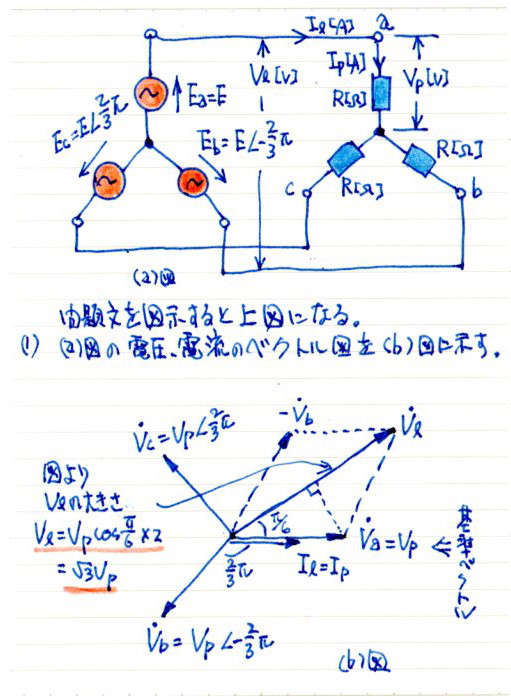 Iℓ[A]
a
Ip[A]
Vℓ[V]
Vp[V]
R[Ω]
Ea=E
Ec=E∠2/3π
Eb=E∠-2/3π
R[Ω]
R[Ω]
c
b
(a)図
問題文を図示すると上図になる。
(1) (a)図の電圧、電流のベクトル図を(b)図に示す。
-V̇b
V̇ℓ
V̇c=Vp∠2/3π
図より
Vℓの大きさ
Vℓ=Vp cos π/6 ×2
=√3Vp
π/6
2/3π
Iℓ=Ip
V̇a=Vp ⇐
基準ベクトル
V̇b=Vp∠-2/3π
(b)図